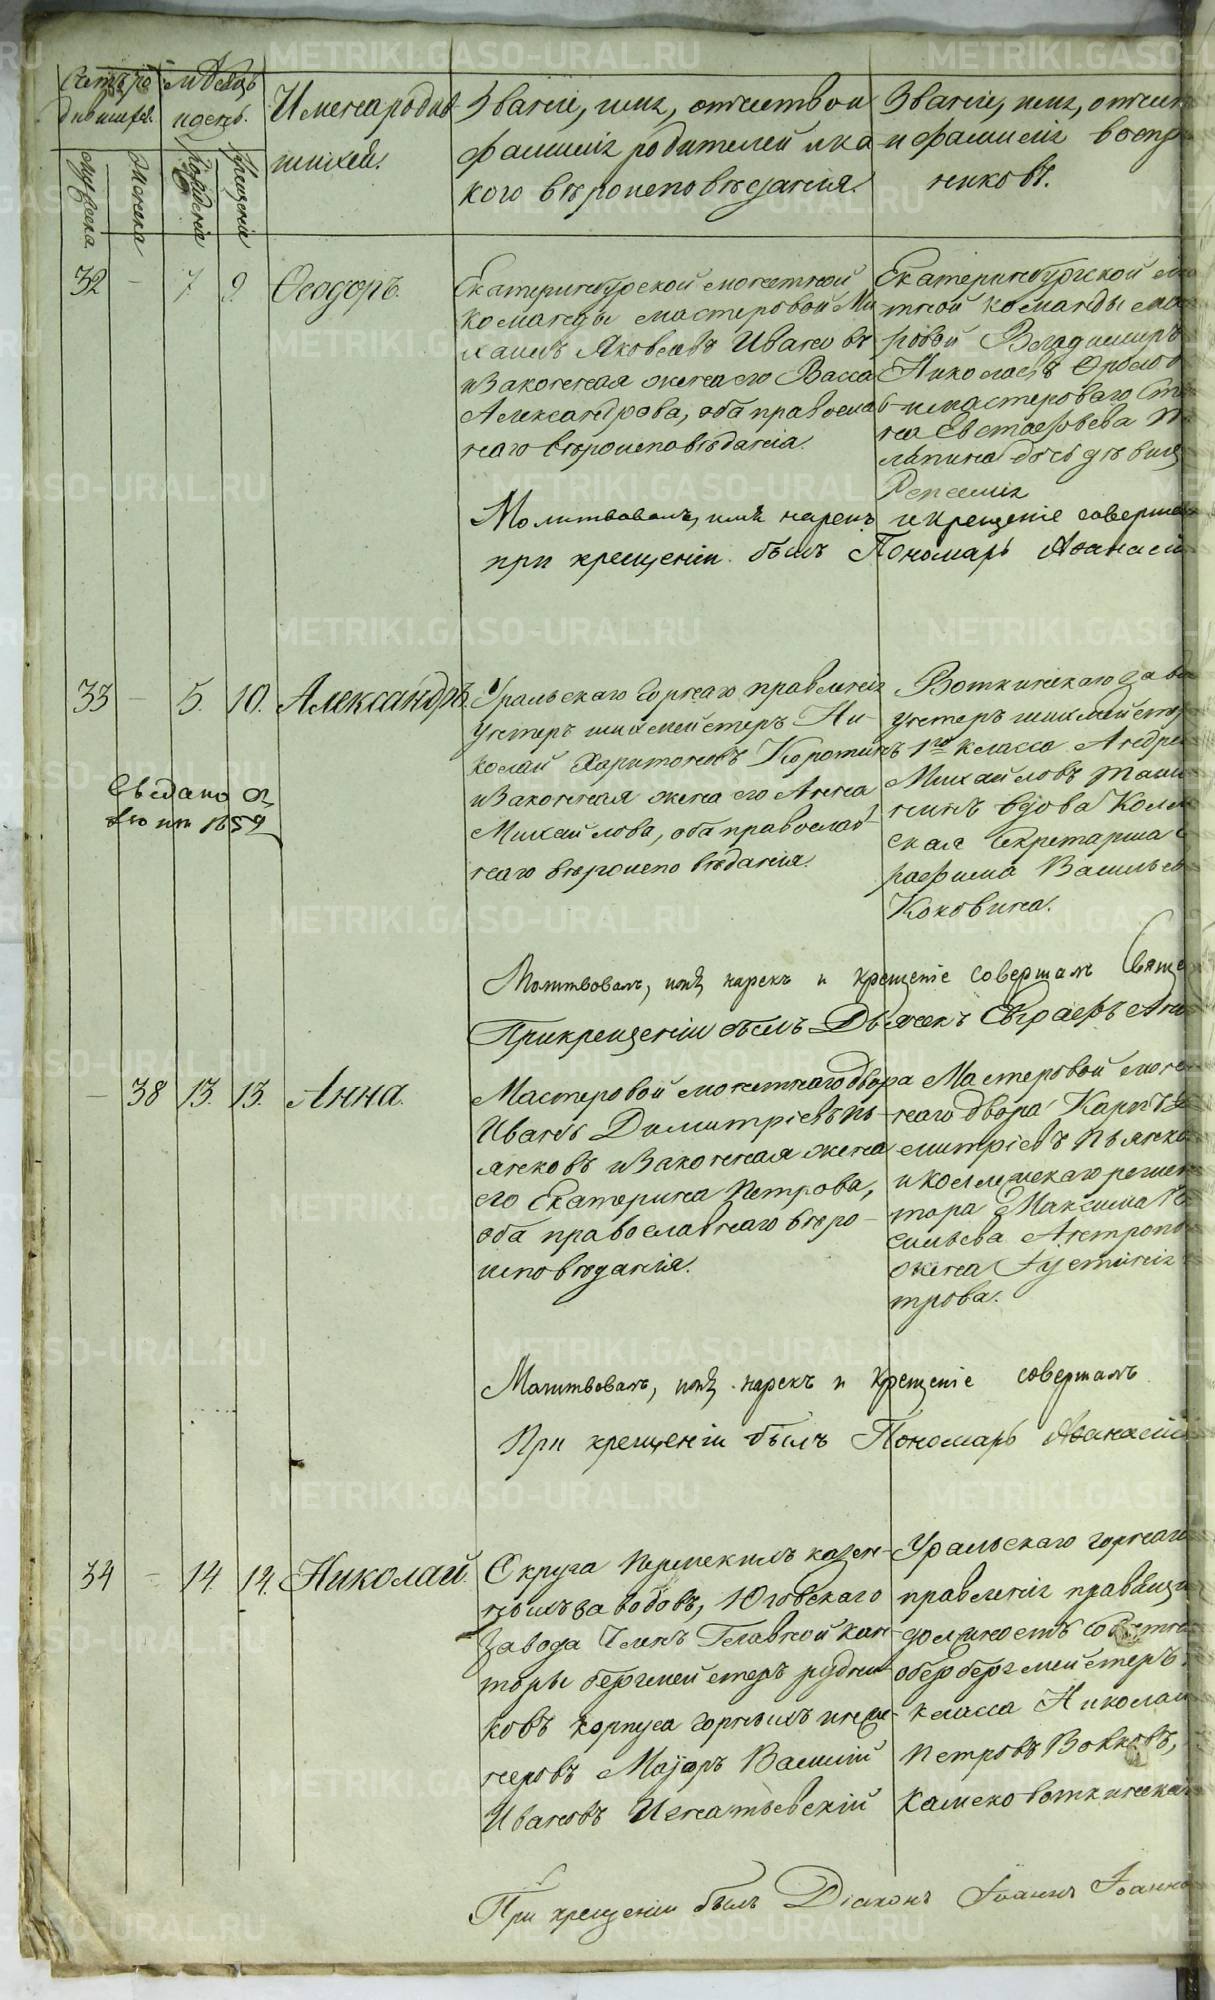 Счетъ ро
дившихся.
мужеска.
женска
Мѣсяцъ
и день.
рожденія
крещенія
Имена родив
шихся.
Званіе, имя, отчество и
фамилія родителей и ка
кого вѣроисповѣданія.
Званіе, имя, отчест
и фамилія воспр
никовъ.
32 — 7. 9. Ѳеодоръ.
Екатеринбургской монетной
команды мастеровой Ми
хаилъ Яковлевъ Ивано въ
и законная жена его Васса
Александрова, оба православ
наго вѣроисповѣданія.
Екатеринбургской мо
тной команды мас
ровой Владимиръ
Николаевъ
и мастероваго Сте
на Евстафьева
дочь дѣвица
Молитвовалъ, имя нарекъ и крещеніе соверша
при крещеніи былъ Пономарь Аѳанасій
33 — 5. 10. Александръ.
Уральскаго Горнаго правленія
Николай Харитоновъ Коротинъ
и законная жена его Анна
Михайлова, оба православ
наго вѣроисповѣданія.
Воткинскаго заво
1го класса Андрей
Михайловъ
вдова Колле
ская Секретарша
рафима Василье
Коковина.
Молитвовалъ, имя нарекъ и крещеніе совершалъ Свяще
При крещеніи былъ Дьячекъ Евграфъ
— 38 13. 13. Анна.
Мастеровой монетнаго двора
Иванъ Димитріевъ Пь
янковъ и законная жена
его Екатерина Петрова,
оба православнаго вѣро
исповѣданія.
Мастеровой моне
наго двора Карпъ Д
митріевъ Пьянко
и коллежскаго регист
тора Максима Ва
сильева
жена Іустинія
трова.
Молитвовалъ, имя нарекъ и крещеніе совершалъ
При крещеніи былъ Пономарь Аѳанасій
34 — 14 14. Николай.
Округа Пермскихъ казен
ныхъ заводовъ, Юговскаго
завода Членъ Главной кон
торы бергмейстеръ рудни
ковъ корпуса горныхъ инже
неровъ Маіоръ Василій
Ивановъ Игнатьевскій
Уральскаго горнаго
правленія правящі
должность Совѣтни
обербергмейстеръ
класса Николай
Петровъ Волковъ,
Камско воткинскаго
При крещеніи былъ Діаконъ Іоаннъ Іоанно
METRIKI.GASO-URAL.RU